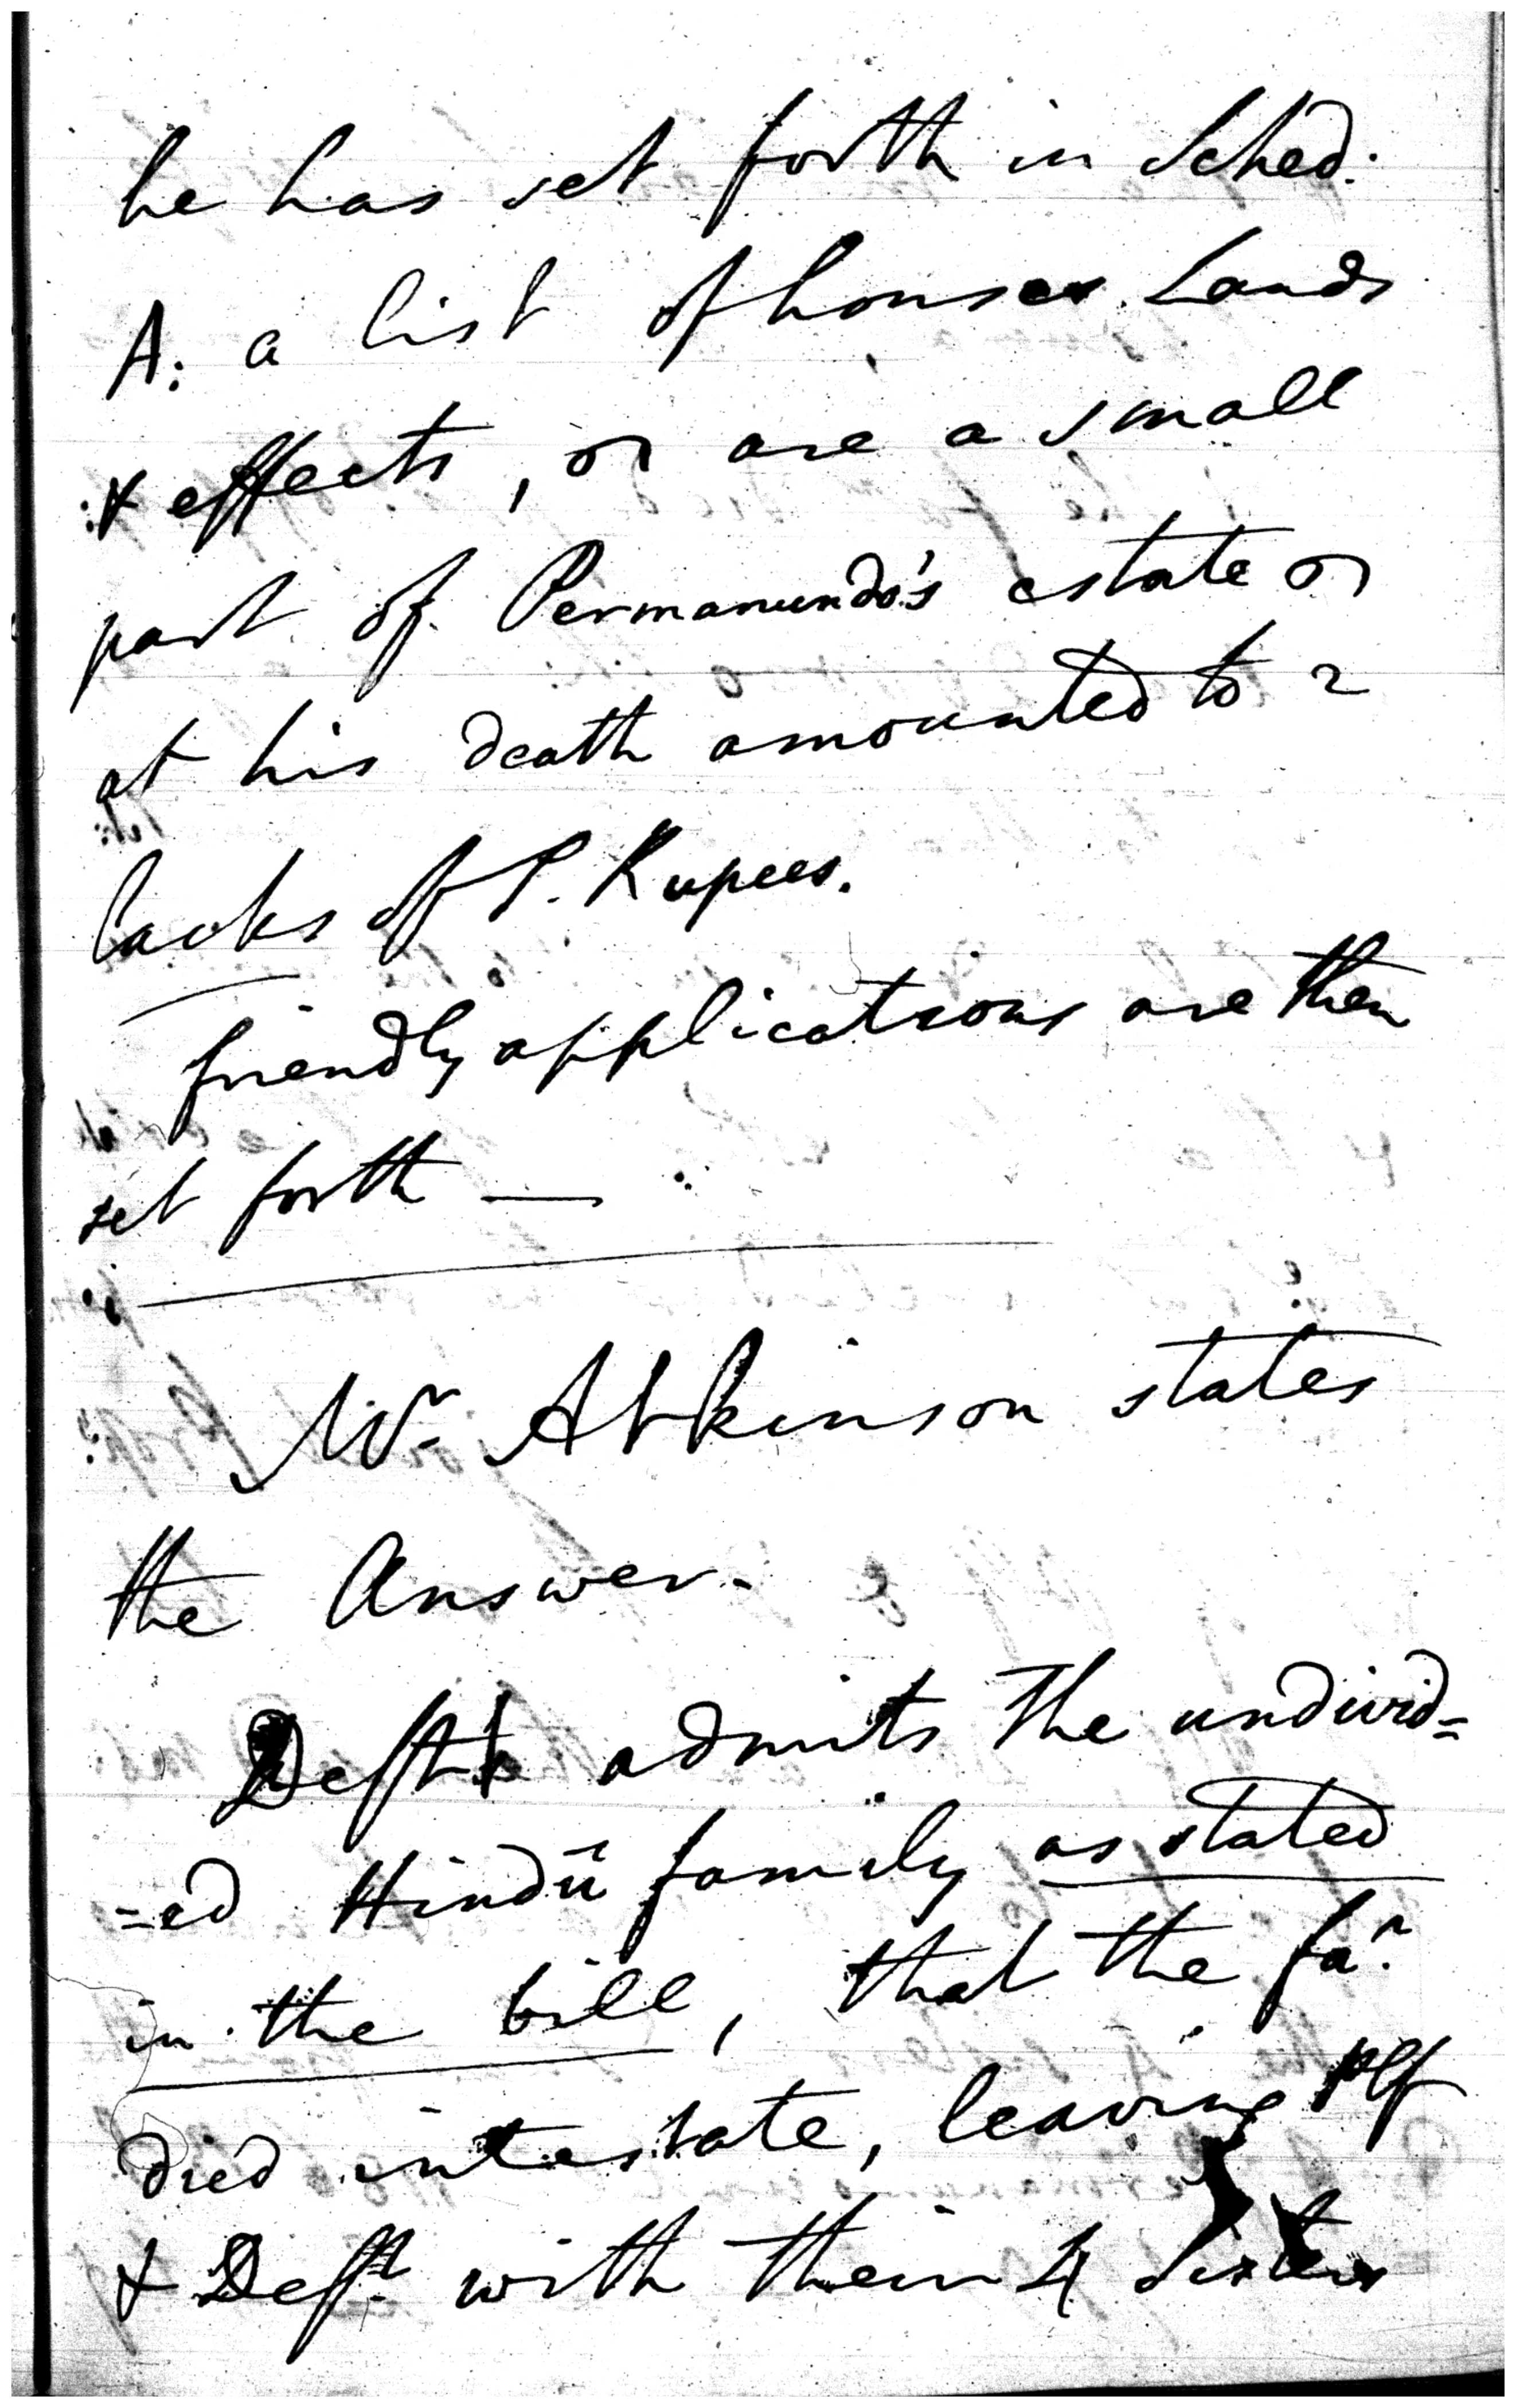 he has set forth in Sched:
A: a list of houses Lands
& effects, wh are a small
part of Permanundo's estate wh
at his death amounted to 2
lacks of S. Rupees.
friendly applications are then
set forth —
Mr. Atkinson states
the Answer.
Deft admits the undivid=
=ed Hindū family as stated
in the bill, that the far.
died intestate, leaving Plf
& Deft. with their 4 Sisters